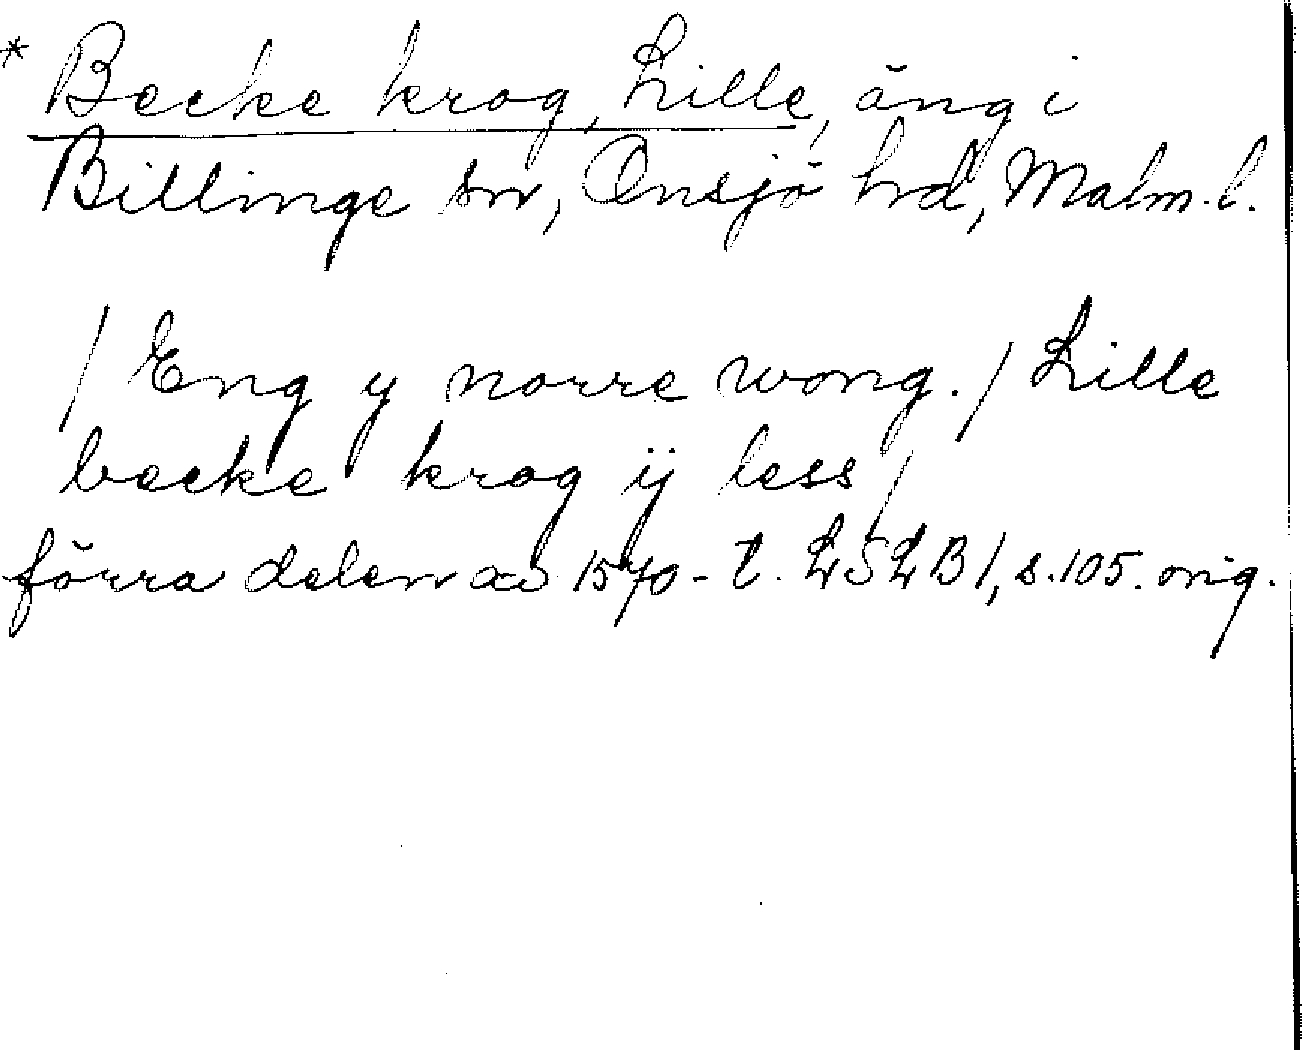 * Becke krog, Lille, äng i
Billinge sn, Onsjö hd, Malm. l.
/ Eng y norre wong. / Lille
becke krog ij less /
förra delen av 1570-t. LSLB 1, s. 105. orig.